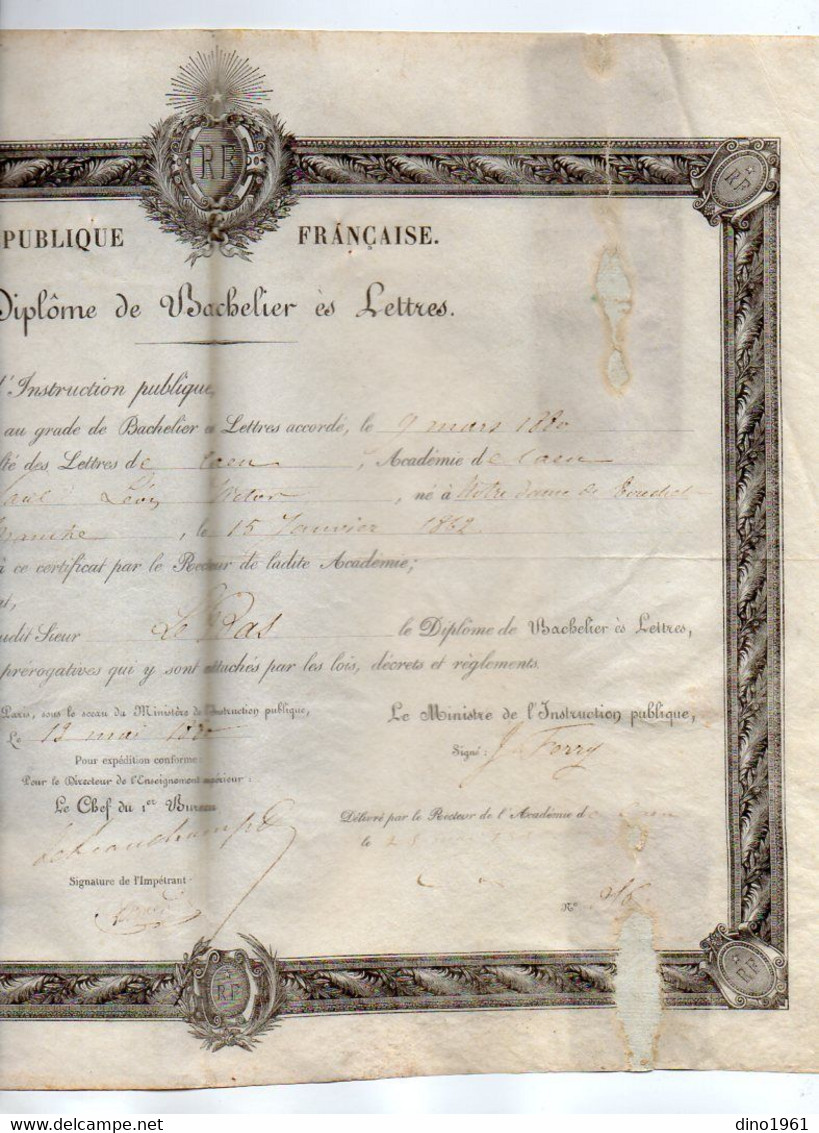 RF
RF
PUBLIQUE FRANÇAISE.
Diplôme de Bachelier ès Lettres.
l'Instruction publique,
au grade de Bachelier ès Lettres accordé, le 9 mars 1880
lté des Lettres de Caen, Académie de Caen
Paul Léon Victor, né à Notre Dame de
Manche, le 15 Janvier 1862
à ce certificat par le Recteur de ladite Académie;
udit Sieur Le Bas le Diplôme de Bachelier ès Lettres,
prérogatives qui y sont attachés par les lois, décrets et règlements.
Paris, sous le sceau du Ministère de l'Instruction publique,
Le 13 mai 1880
Le Ministre de l'Instruction publique,
Signé: J Ferry
Pour expédition conforme:
Pour le Directeur de l'Enseignement supérieur:
Le Chef du 1er Bureau
de Beauchamp
Délivré par le Recteur de l'Académie de Caen
le 28
Signature de l'Impétrant
N° 26
RF
RF
dino1961
dino1961